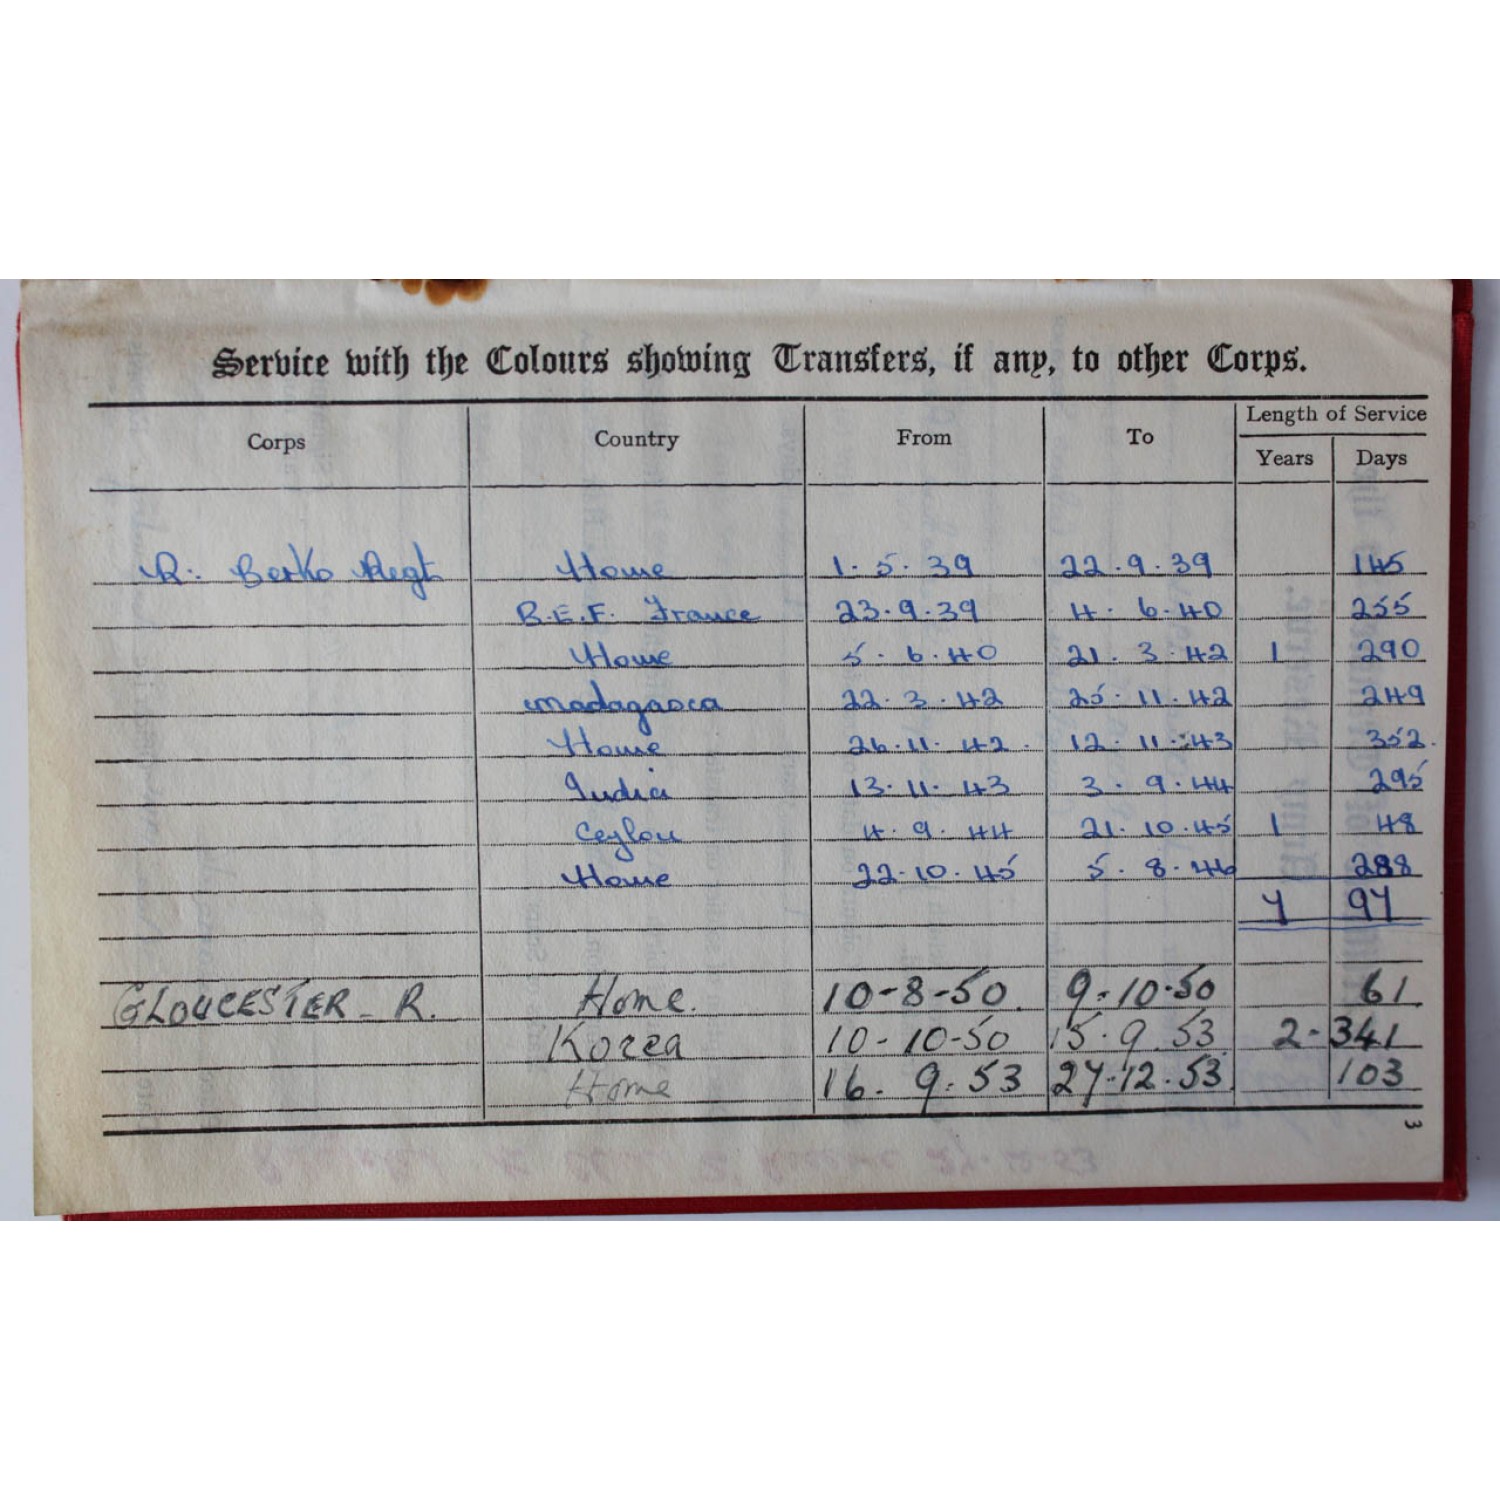 Service with the Colours showing Transfers, if any, to other Corps.
Corps Country From To Length of Service
Years Days
R: Berks Regt Home 1. 5. 39 22. 9. 39 145
B.E.F. France 23. 9. 39 4. 6. 40 255
Home 5. 6. 40 21. 3. 42 1 290
Madagasca 22. 3. 42 25. 11. 42 249
Home 26. 11. 42. 12. 11. 43 352.
India 13. 11. 43 3. 9. 44 295
Ceylon 4. 9. 44 21. 10. 45 1 48
Home 22. 10. 45 5. 8. 46 288
7 97
GLOUCESTER - R. Home. 10-8-50. 9-10-50 61
Korea 10-10-50 15. 9. 53 2-341
Home 16. 9. 53 27.12.53 103
3